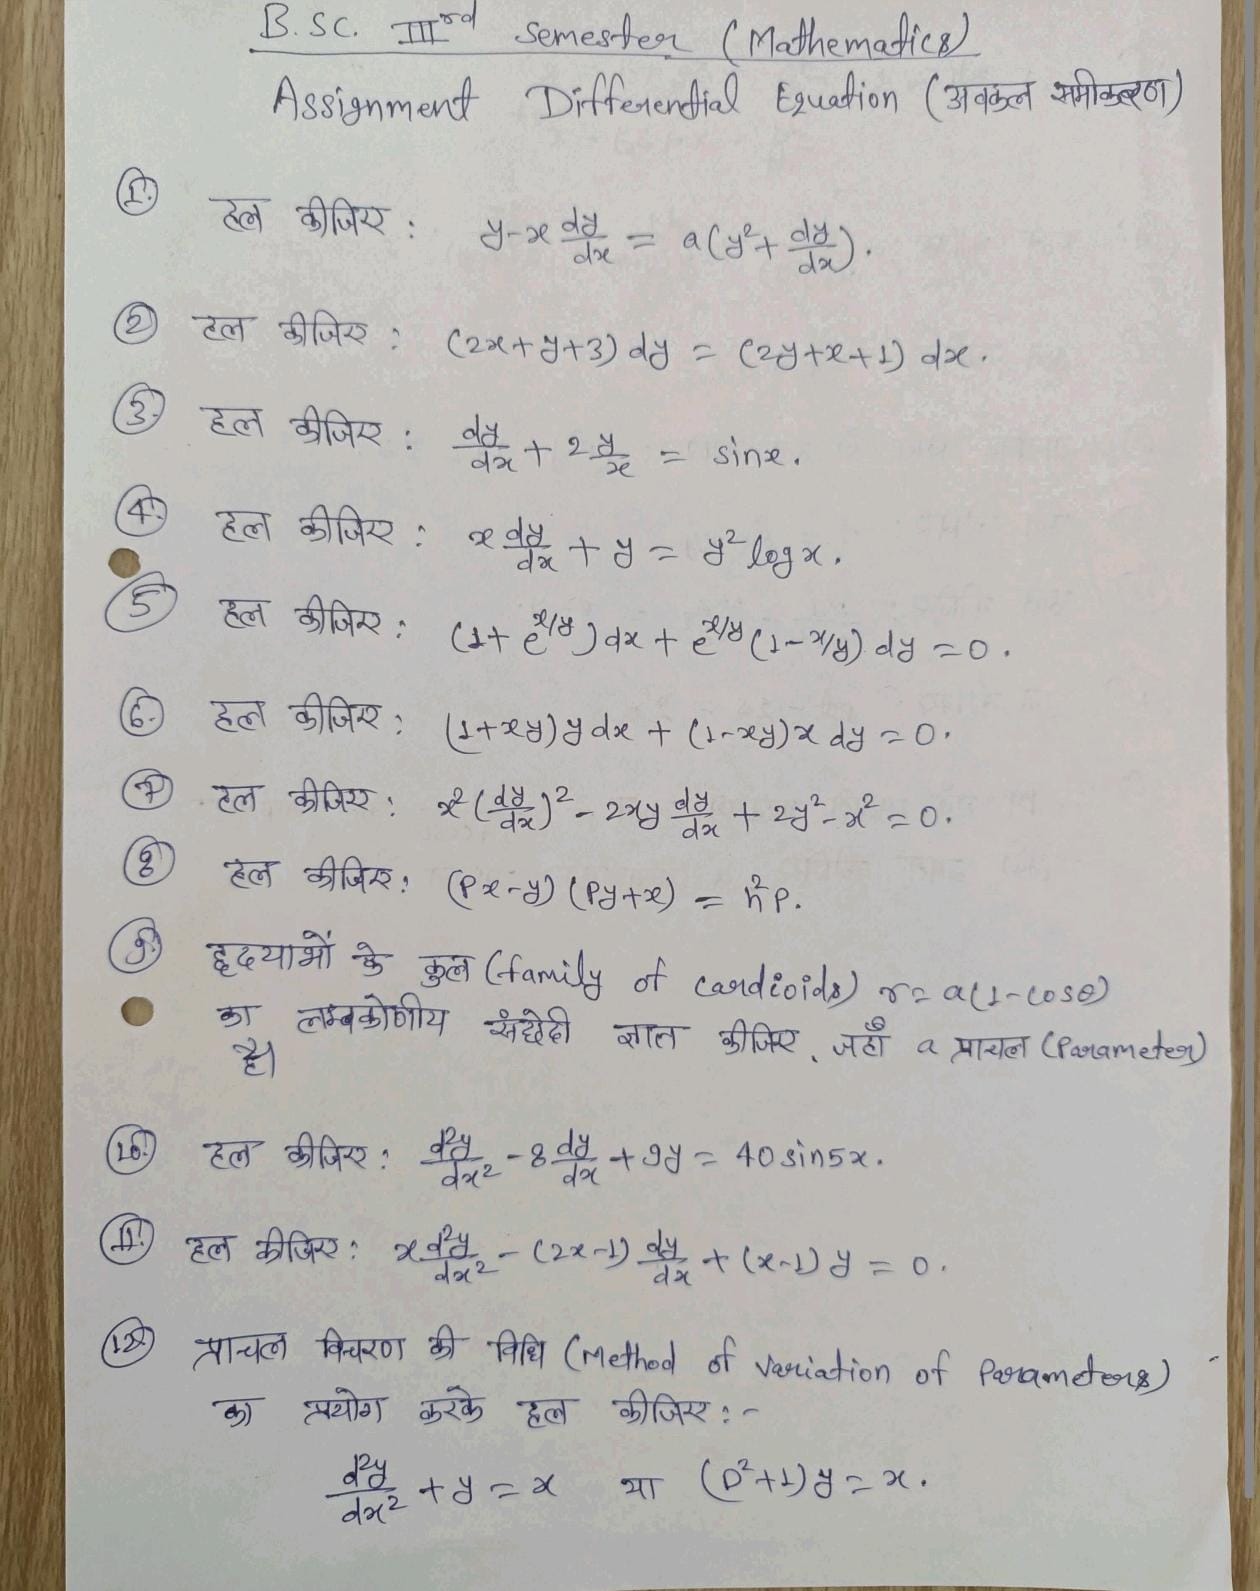 B.SC. IIIrd Semester (Mathematics)
Assignment Differential Equation (अवकल समीकरण)
1. हल कीजिए : y-x dy/dx = a(y²+ dy/dx).
2 हल कीजिए : (2x+y+3) dy = (2y+x+1) dx.
3. हल कीजिए : dy/dx + 2 y/x = sinx.
4. हल कीजिए : x dy/dx + y = y² log x.
5 हल कीजिए : (1+ e^x/y) dx + e^x/y (1-x/y) dy = 0.
6. हल कीजिए : (1+xy) y dx + (1-xy) x dy = 0.
7 हल कीजिए : x² (dy/dx)² - 2xy dy/dx + 2y² - x² = 0.
8 हल कीजिए : (Px-y) (Py+x) = h²P.
9. हृदयाभों के कुल (family of cardioids) r = a(1-cosθ)
का लम्बकोणीय संछेदी ज्ञात कीजिए, जहाँ a प्राचल (Parameter)
है।
10. हल कीजिए : d²y/dx² - 8 dy/dx + 9y = 40 sin5x.
11. हल कीजिए : x d²y/dx² - (2x-1) dy/dx + (x-1) y = 0.
12. प्राचल विचरण की विधि (Method of variation of Parameters)
का प्रयोग करके हल कीजिए :-
d²y/dx² + y = x या (D²+1) y = x.